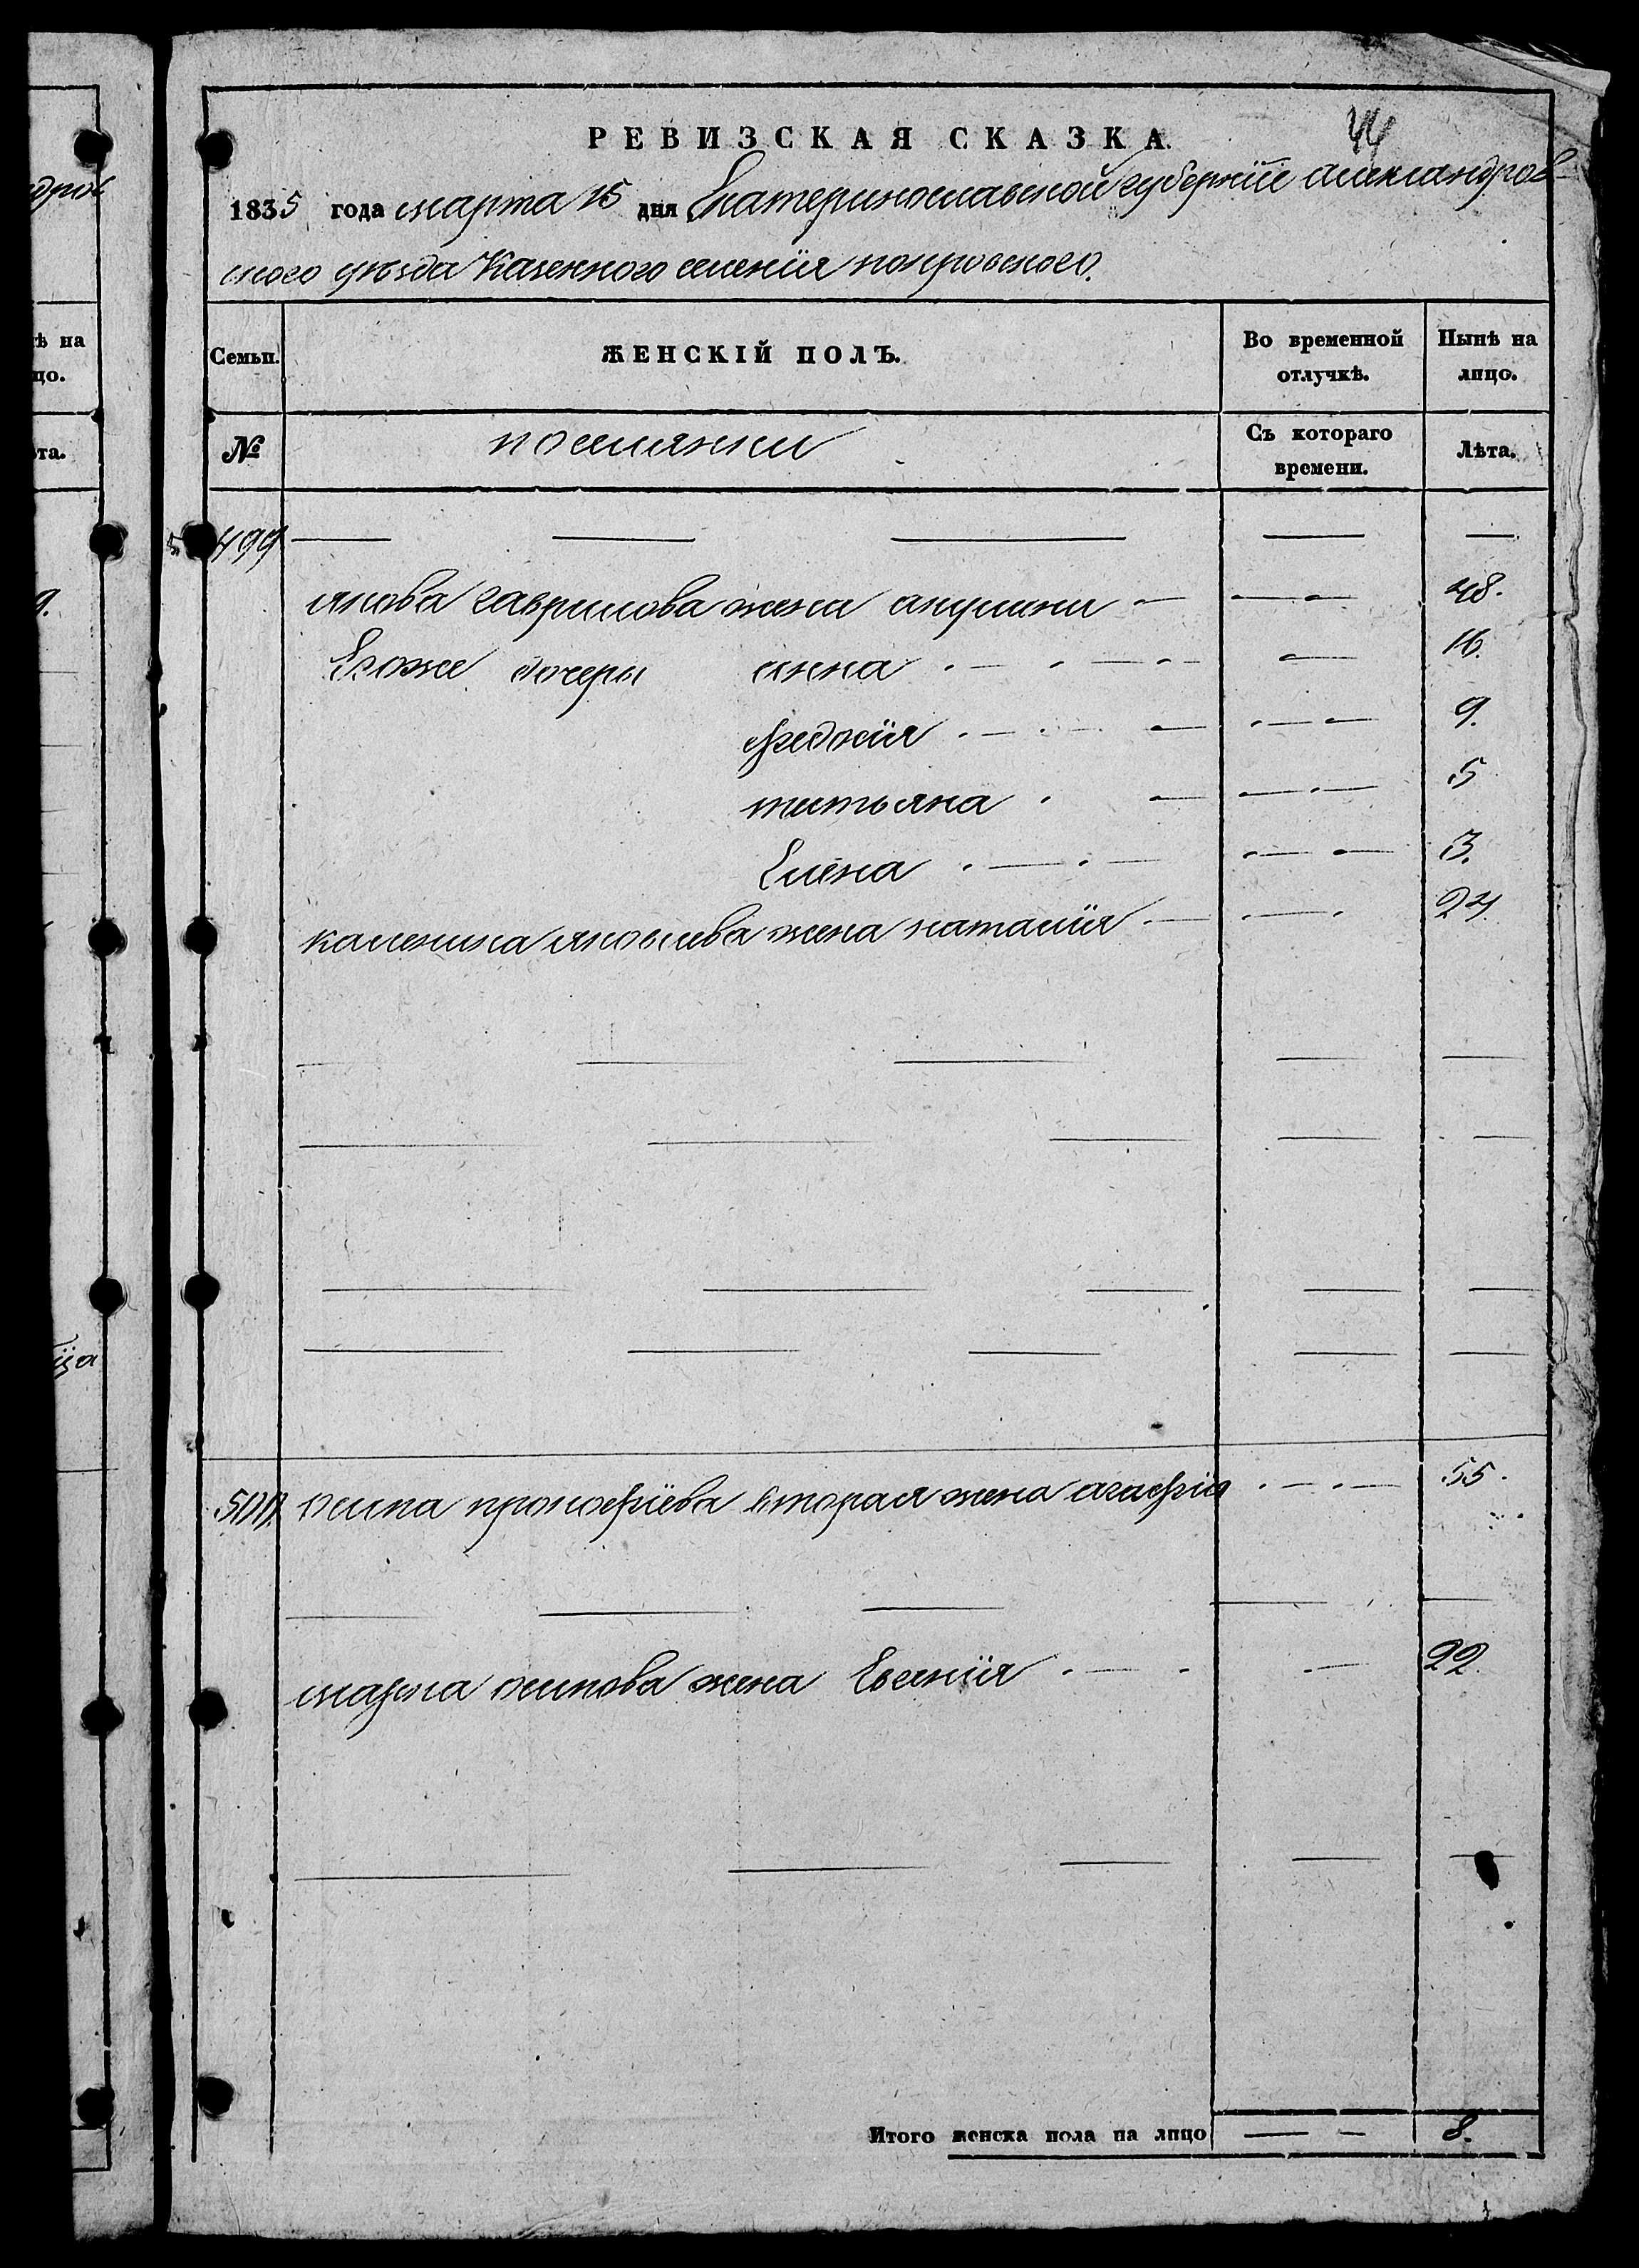 44
РЕВИЗСКАЯ СКАЗКА.
1835 года марта 15 дня Екатеринославской губернїи александров-
ского уѣзда Казенного селенїя покровского.
Семьи. ЖЕНСКІЙ ПОЛЪ. Во временной отлучкѣ. Нынѣ на лицо.
№ поселянки Съ котораго времени. Лѣта.
499
якова гаврилова жена акулина 48.
Егоже дочеры анна 16.
федосїя 9.
татьяна 5
Елена 3.
каленика яковлева жена наталїя 24.
500. осипа прокофїева вторая жена агафїя 55.
осипова жена Евгенїя 22.
Итого женска пола на лицо 8.
дров
ѣ на
цо.
ѣта.
9.